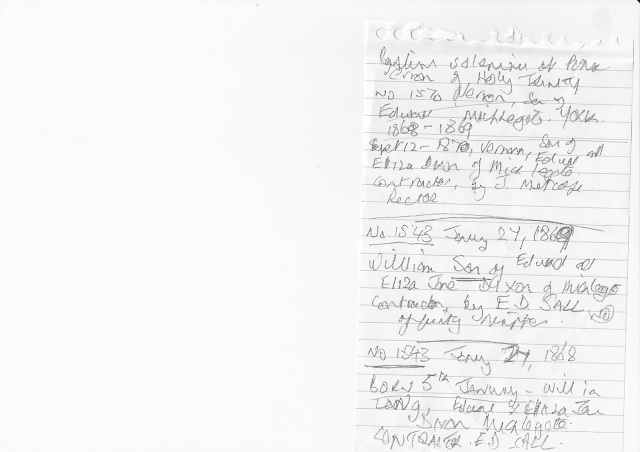 Baptism solemnised at
of Holy Trinity
No 1570 Vernon, Son of
Edward Micklegate. York.
1868-1869
Sept 12 - 1870, Vernon, Son of
Edward and
Eliza Dixon of Micklegate
Contractor, by J. Metcalfe
Rector
No 1543 January 27, 1869
William Son of Edward and
Eliza Jane Dixon of Micklegate
Contractor, by E D SALL
of
No 1543 January 27, 1868
BORN 5th January - William
Edward & Eliza Jane
Dixon Micklegate
CONTRACTOR. E D SALL.